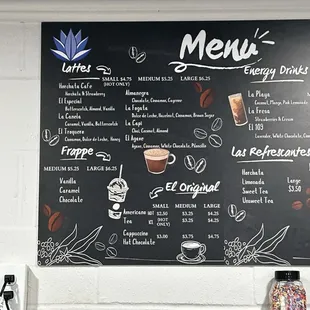 Menu
Lattes
SMALL $4.75
(HOT ONLY)
MEDIUM $5.25 LARGE $6.25
Horchata Cafe
Horchata & Strawberry
El Especial
Butterscotch, Almond, Vanilla
La Canela
Cinnamon, Vanilla, Butterscotch
El Traquero
Cinnamon, Dulce de Leche, Honey
Almanegra
Chocolate, Cinnamon, Cayenne
La Fogata
Dulce de Leche, Hazelnut, Cinnamon, Brown Sugar
La Capi
Chai, Caramel, Almond
El Agave
Agave, Cinnamon, White Chocolate, Piloncillo
Energy Drinks
La Playa
Caramel, Mango, Pink Lemonade
La Fresa
Strawberries & Cream
El 109
Lavender, White Chocolate
Frappe
MEDIUM $5.25 LARGE $6.25
Vanilla
Caramel
Chocolate
El Original
SMALL MEDIUM LARGE
Americano HOT $2.50 $3.25 $4.25
Tea ICE $3.25 $4.25
Cappuccino
Hot Chocolate $3.00 $3.75 $4.50
Las Refrescantes
Horchata
Limonada
Sweet Tea
Unsweet Tea
Large
$3.50